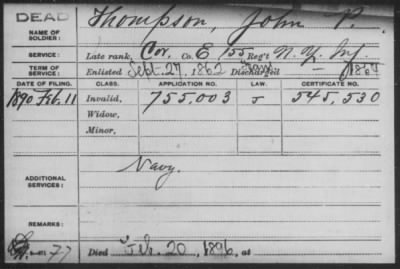 DEAD
NAME OF SOLDIER: Thompson, John P.
SERVICE: Late rank, Cor. Co. E, 155 Reg't N.Y. Inf.
TERM OF SERVICE: Enlisted Sept. 27, 1862 Discharged 1864
DATE OF FILING. CLASS. APPLICATION NO. LAW. CERTIFICATE NO.
1890 Feb. 11 Invalid, 755.003 J 545,530
Widow,
Minor,
ADDITIONAL SERVICES: Navy.
REMARKS:
77 Died Feb. 20, 1896, at